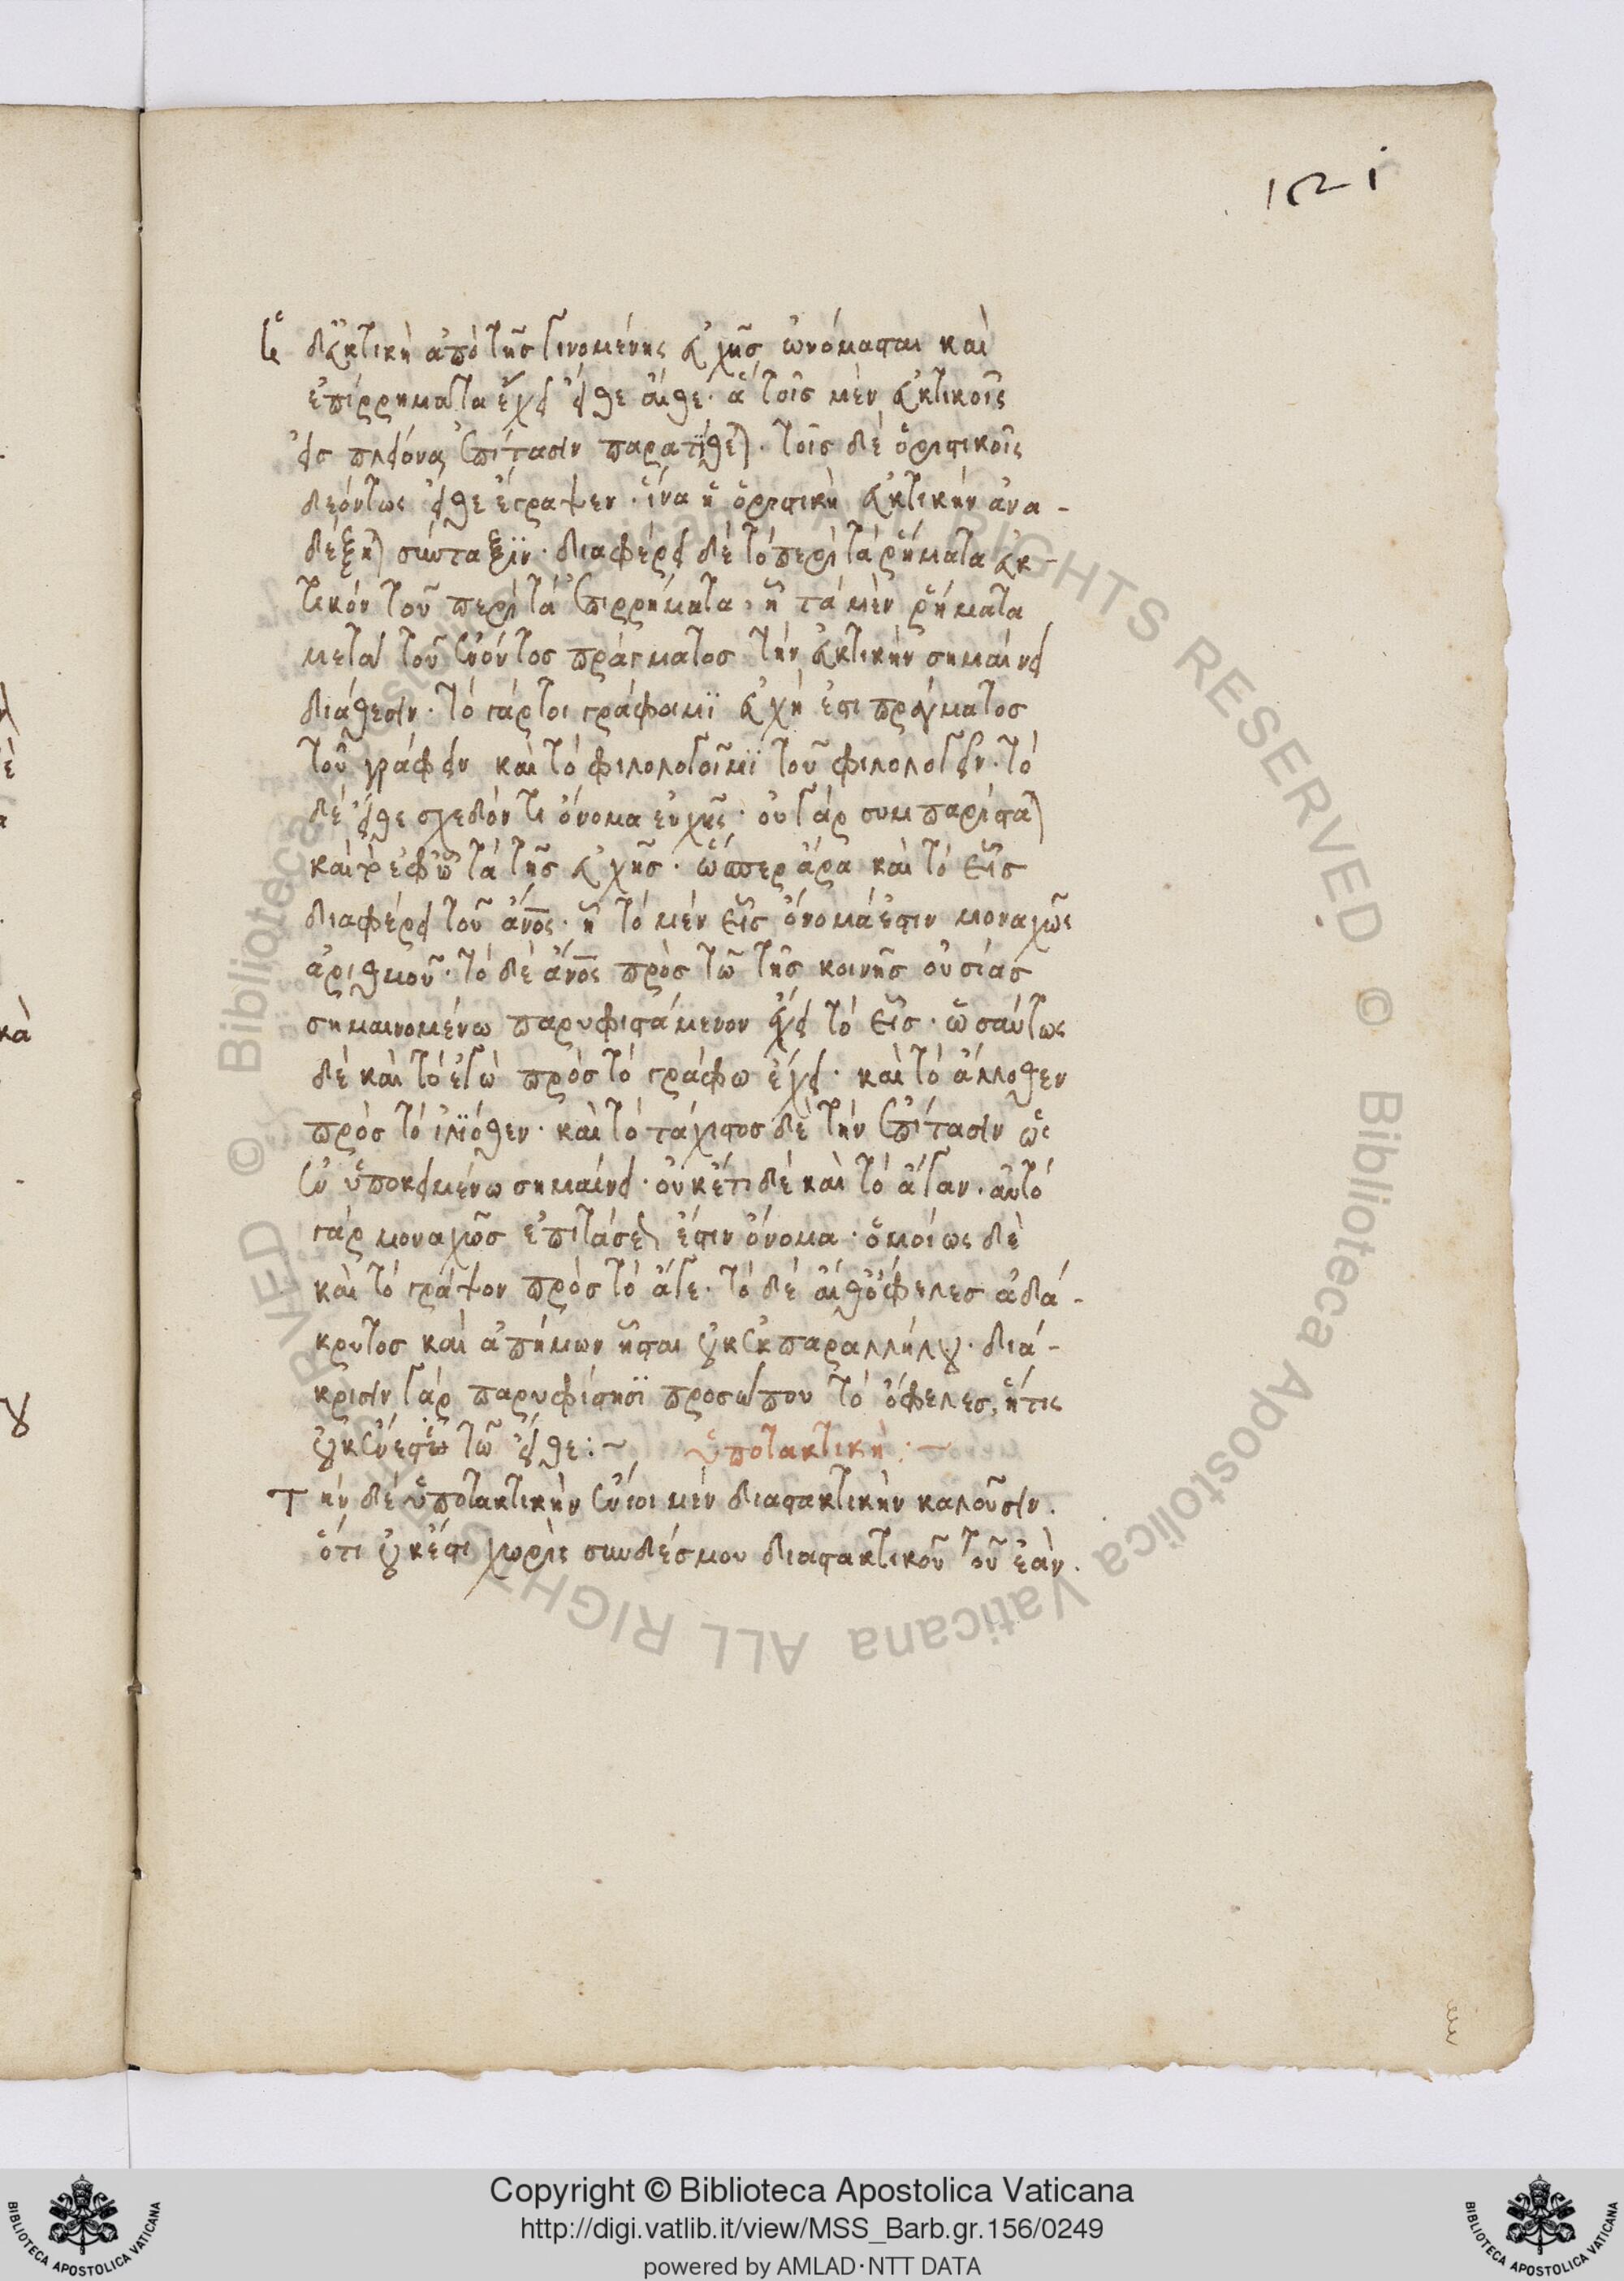 121
ἡ δὲ εὐκτικὴ ἀπὸ τῆς γινομένης εὐχῆς ὠνόμασται καὶ
ἐπιρρήματα ἔχει εἴθε αἴθε· ἃ τοῖς μὲν εὐκτικοῖς
εἰς πλείονα ἐπίτασιν παρατίθεται· τοῖς δὲ ὁριστικοῖς
δεόντως εἴθε ἔγραψεν· ἵνα ἡ ὁριστικὴ εὐκτικὴν ἀνα-
δέξηται σύνταξιν· διαφέρει δὲ τὸ περὶ τὰ ῥήματα εὐκ-
τικὸν τοῦ περὶ τὰ ἐπιρρήματα, ᾗ τὰ μὲν ῥήματα
μετὰ τοῦ ἐνόντος πράγματος τὴν εὐκτικὴν σημαίνει
διάθεσιν· τὸ γάρ τοι γράφοιμι εὐχή ἐστι πράγματος
τοῦ γράφειν καὶ τὸ φιλολογοῖμι τοῦ φιλολογεῖν· τὸ
δὲ εἴθε σχεδόν τι ὄνομα εὐχῆς· οὐ γὰρ συμπαρίσταται
τὰ τῆς εὐχῆς· ὥσπερ ἄρα καὶ τὸ εἷς
διαφέρει τοῦ ἄνος· ᾗ τὸ μὲν εἷς ὄνομά ἐστιν μοναχῶς
ἀριθμοῦ· τὸ δὲ ἄνος πρὸς τῷ τῆς κοινῆς οὐσίας
σημαινομένω παρυφιστάμενον ἔχει τὸ εἷς· ὡσαύτως
δὲ καὶ τὸ ἐγὼ πρὸς τὸ γράφω ἔχει· καὶ τὸ ἄλλοθεν
πρὸς τὸ ἰλιόθεν· καὶ τὸ τάχιστος δὲ τὴν ἐπίτασιν ὡς
ἐν ὑποκειμένω σημαίνει· οὐκέτι δὲ καὶ τὸ ἄγαν· αὐτὸ
γὰρ μοναχῶς ἐπιτάσεως ἐστιν ὄνομα· ὁμοίως δὲ
καὶ τὸ γράψον πρὸς τὸ ἄγε· τὸ δὲ αἴθ' ὄφελες ἀδά-
κρυτος καὶ ἀπήμων ἧσται οὐκ ἐκ παραλλήλου· διά-
κρισιν γὰρ παρυφίστησι προσώπου τὸ ὄφελες, ἥτις
οὐκ ἔνεστιν τῷ εἴθε:~ ὑποτακτική:~
Τὴν δὲ ὑποτακτικὴν ἔνιοι μὲν διστακτικὴν καλοῦσιν·
ὅτι οὐκ ἔστι χωρὶς συνδέσμου διστακτικοῦ τοῦ ἐάν.
© Biblioteca Apostolica Vaticana ALL RIGHTS RESERVED
Copyright © Biblioteca Apostolica Vaticana
http://digi.vatlib.it/view/MSS_Barb.gr.156/0249
powered by AMLAD·NTT DATA
BIBLIOTECA APOSTOLICA VATICANA
BIBLIOTECA APOSTOLICA VATICANA